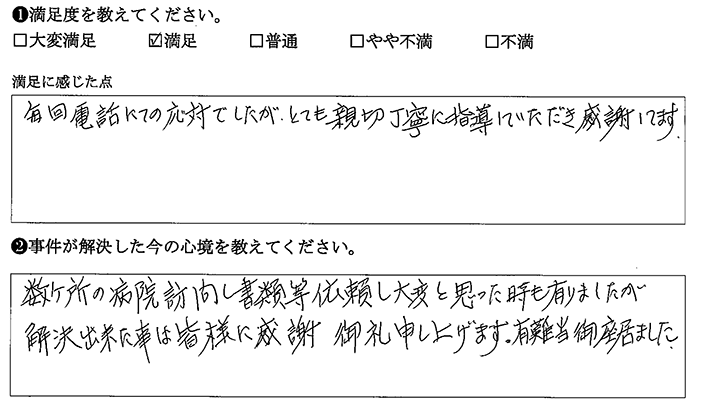 ❶満足度を教えてください。
□大変満足 ☑満足 □普通 □やや不満 □不満
満足に感じた点
毎回電話にての応対でしたが、とても親切丁寧に指導していただき感謝してます。
❷事件が解決した今の心境を教えてください。
数ヶ所の病院訪問し書類等依頼し大変と思った時も有りましたが
解決出来た事は皆様に感謝 御礼申し上げます。有難当御座居ました